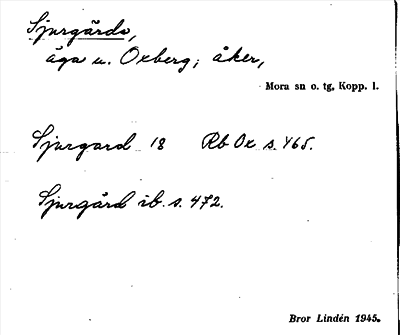 Sjurgårds,
äga u. Oxberg; åker,
Mora sn o. tg, Kopp. l.
Sjurgard 18 Rb Ox s. 465.
Sjurgård ib. s. 472.
Bror Lindén 1945.